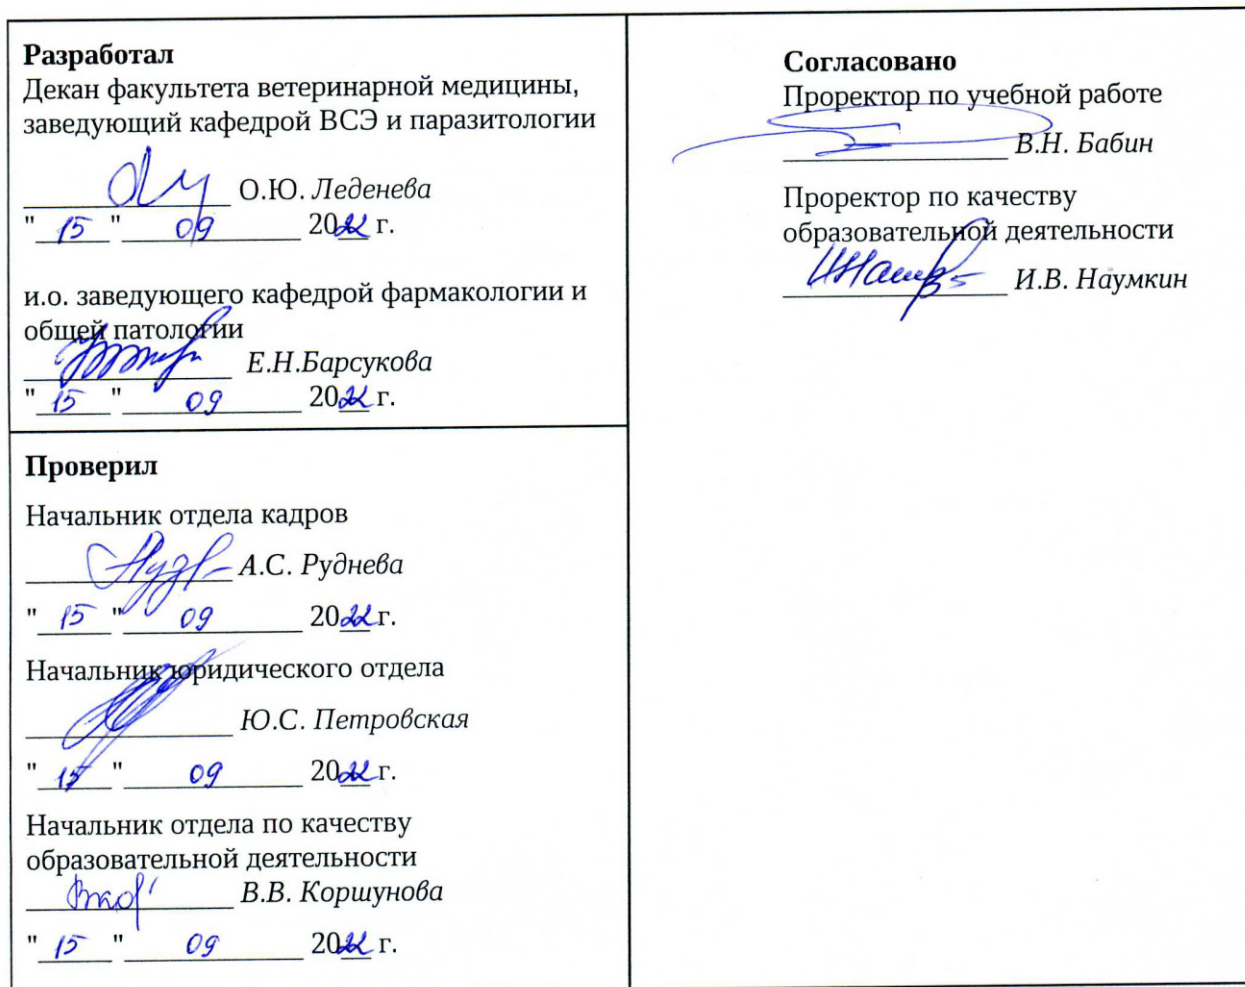 Разработал
Декан факультета ветеринарной медицины,
заведующий кафедрой ВСЭ и паразитологии
О.Ю. Леденева
"15" 09 2022 г.
и.о. заведующего кафедрой фармакологии и
общей патологии
Е.Н.Барсукова
"15" 09 2022 г.
Проверил
Начальник отдела кадров
А.С. Руднева
"15" 09 2022 г.
Начальник юридического отдела
Ю.С. Петровская
"15" 09 2022 г.
Начальник отдела по качеству
образовательной деятельности
В.В. Коршунова
"15" 09 2022 г.
Согласовано
Проректор по учебной работе
В.Н. Бабин
Проректор по качеству
образовательной деятельности
И.В. Наумкин